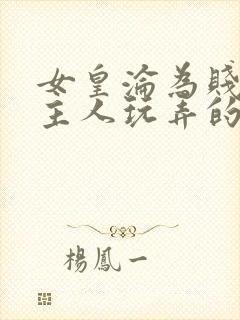 女皇淪為賤
主人玩弄的
楊鳳一